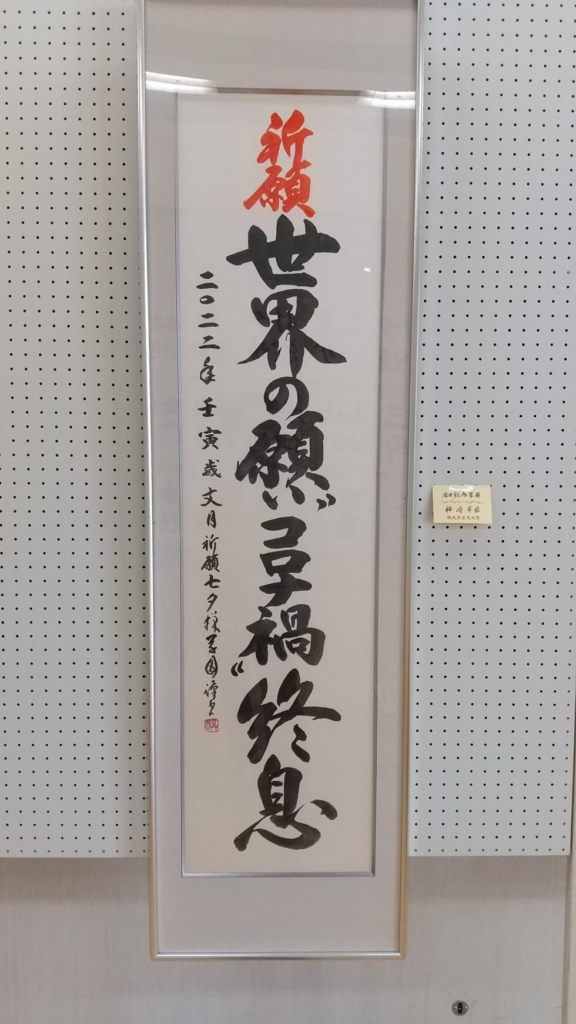 祈願
世界の願い〝コロナ禍〟終息
二〇二二年 壬寅歳文月祈願七夕様